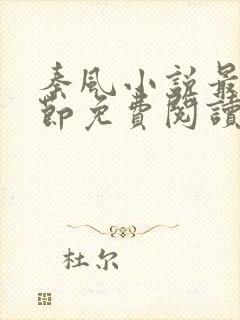 秦風小說最
節免費閱讀
杜尔